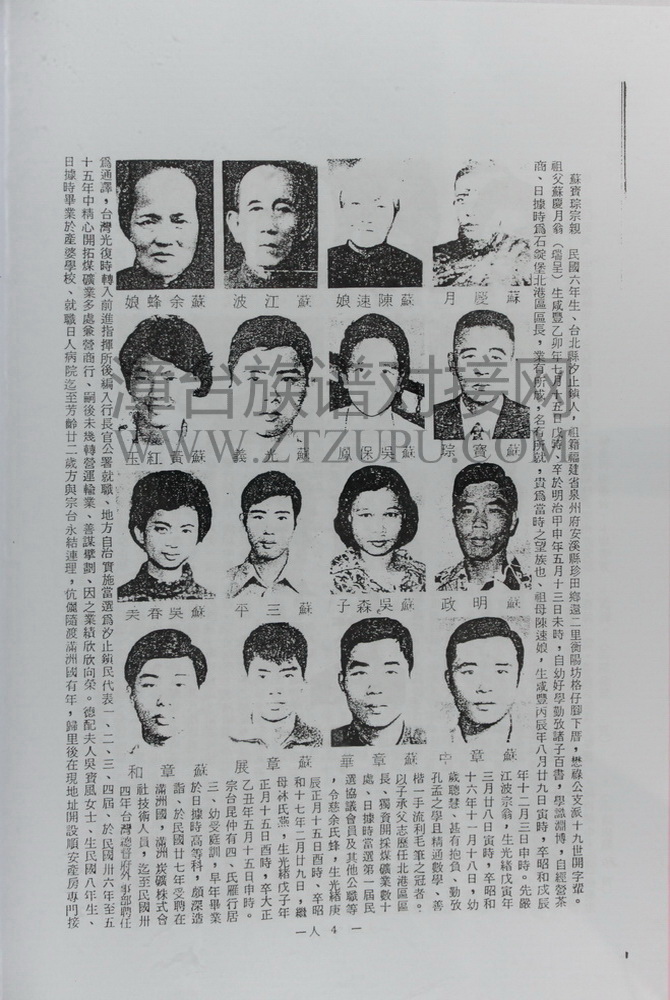 蘇寶琮宗親　民國六年生、台北縣汐止鎮人，祖籍福建省泉州府安溪縣珍田鄉還二里衡陽坊格仔腳下厝，懋祿公支派十九世開字輩。
祖父蘇慶月翁（瑞呈）生咸豐乙卯年七月十五日戌時、卒於明治甲申年五月十三日未時，自幼好學勤攻諸子百書，學識淵博，自經營茶
商、日據時爲石碇堡北港區區長，業有所成，名有所就，貴爲當時之望族也、祖母陳速娘，生咸豐丙辰年八月廿九日寅時，卒昭和戊辰
年十二月三日申時。先嚴
江波宗翁，生光緒戊寅年
三月廿八日寅時，卒昭和
十六年十一月十八日，幼
歲聰慧、甚有抱負、勤攻
孔孟之學且精通數學、善
楷一手流利毛筆之冠者。
以子承父志歷任北港區區
長、獨資開採煤礦業數十
處、日據時當選第一屆民
選協議會員及其他公職等
，令慈余氏蜂，生光緒庚
辰正月十五日酉時、卒昭
和十七年二月廿九日，繼
母林氏燕，生光緒戊子年
正月十五日酉時，卒大正
乙丑年五月十五日申時。
宗台昆仲有四、氏雁行居
三、幼受庭訓，早年畢業
於日據時高等科，頗深造
詣、於民國廿七年受聘在
滿洲國，滿洲炭礦株式會
社技術人員，迄至民國卅
四年台灣總督府外事部聘任
爲通譯，台灣光復時轉入前進指揮所後編入行長官公署就職、地方自治實施當選爲汐止鎮民代表一、二、三、四屆、於民國卅六年至五
十五年中精心開拓煤礦業多處兼營商行、嗣後未幾轉營運輸業、善謀擘劃、因之業績欣欣向榮。德配夫人吳寶鳳女士、生民國八年生、
日據時畢業於產婆學校、就職日人病院迄至芳齡廿二歲方與宗台永結連理，伉儷隨渡滿洲國有年，歸里後在現地址開設順安產房專門接
蘇慶月
蘇陳速娘
蘇江波
蘇余蜂娘
蘇寶琮
蘇吳保鳳
蘇光義
蘇黃紅玉
蘇明政
蘇吳森子
蘇三平
蘇吳春美
蘇章中
蘇章華
蘇章展
蘇章和
漳台族谱对接网
WWW.ZTZUPU.COM
一人 4 一